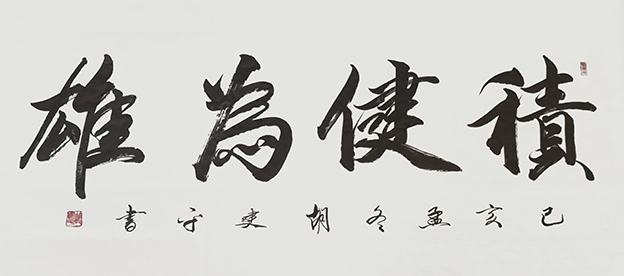 積健為雄
己亥孟冬胡書